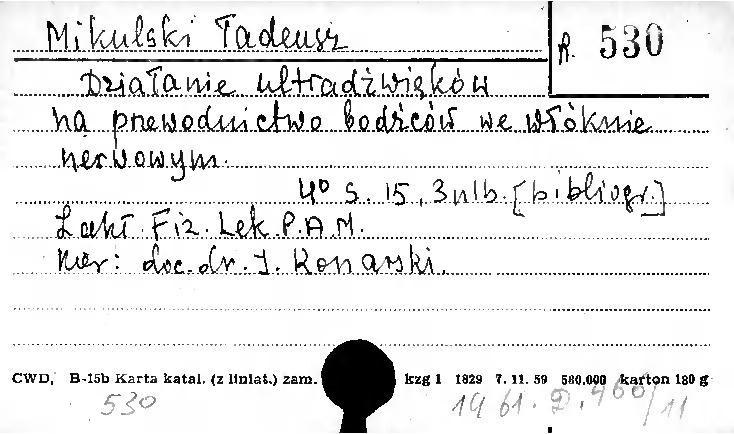 Mikulski Tadeusz
R. 530
Działanie ultradźwięków
na przewodnictwo bodźców we włóknie
nerwowym.
4° S. 15, 3 nlb. [bibliogr.]
Zakł. Fiz. Lek. P.A.M.
Kier: doc. dr. J. Konarski.
CWD, B-15b Karta katal. (z liniat.) zam. kzg 1 1829 7. 11. 59 500.000 karton 180 g
530 1961. D. 466/11